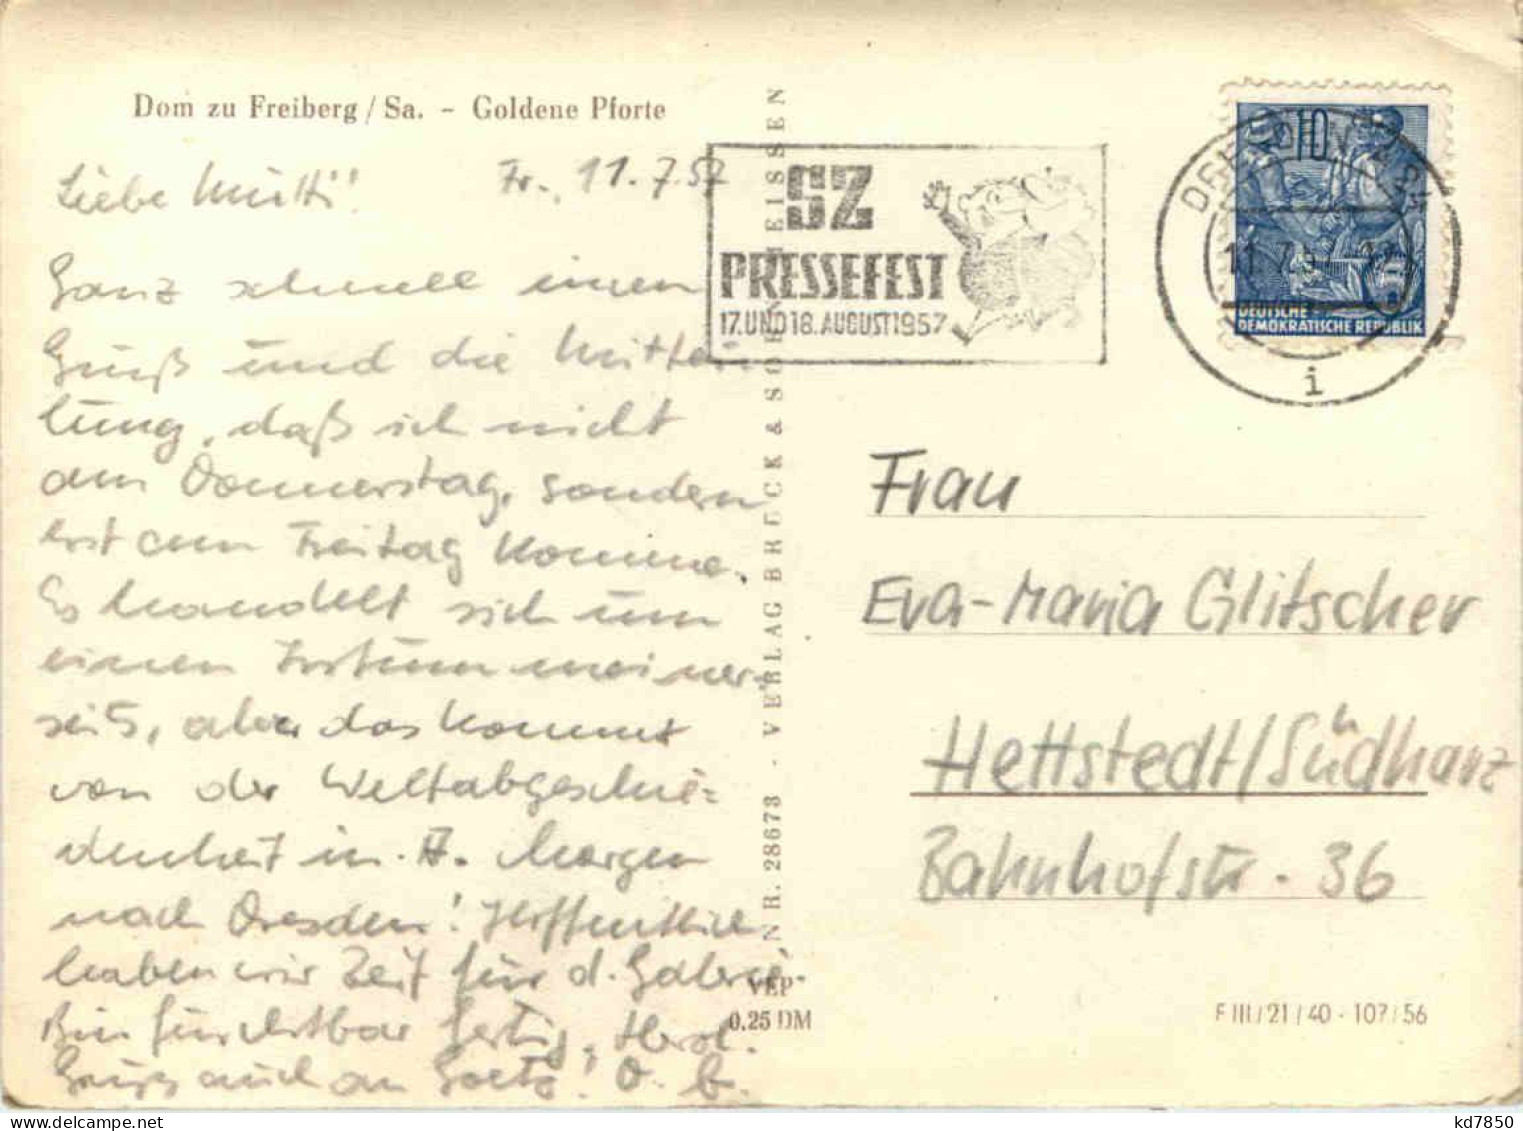 Dom zu Freiberg / Sa. – Goldene Pforte
Liebe Mutti! Fr., 11.7.57
Ganz schnell einen
Gruß und die Mittei-
lung, daß ich nicht
am Donnerstag, sondern
erst am Freitag komme.
Es handelt sich um
einen Irrtum meiner-
seits, aber das kommt
von der Weltabgeschie-
denheit in A. Morgen
nach Dresden! Hoffentlich
haben wir Zeit für d. Galerie.
Bin furchtbar fertig, Herzl.
Gruß auch an Goetz!
NR. 28673 - VERLAG BRÜCK & SOHN, MEISSEN
VEP
0,25 DM
SZ
PRESSEFEST
17. UND 18. AUGUST 1957
DRESDEN
11.7.57
i
10
DEUTSCHE
DEMOKRATISCHE REPUBLIK
Frau
Eva-Maria Glitscher
Hettstedt/Südharz
Bahnhofstr. 36
F III/21/40 - 107/56
kd7850